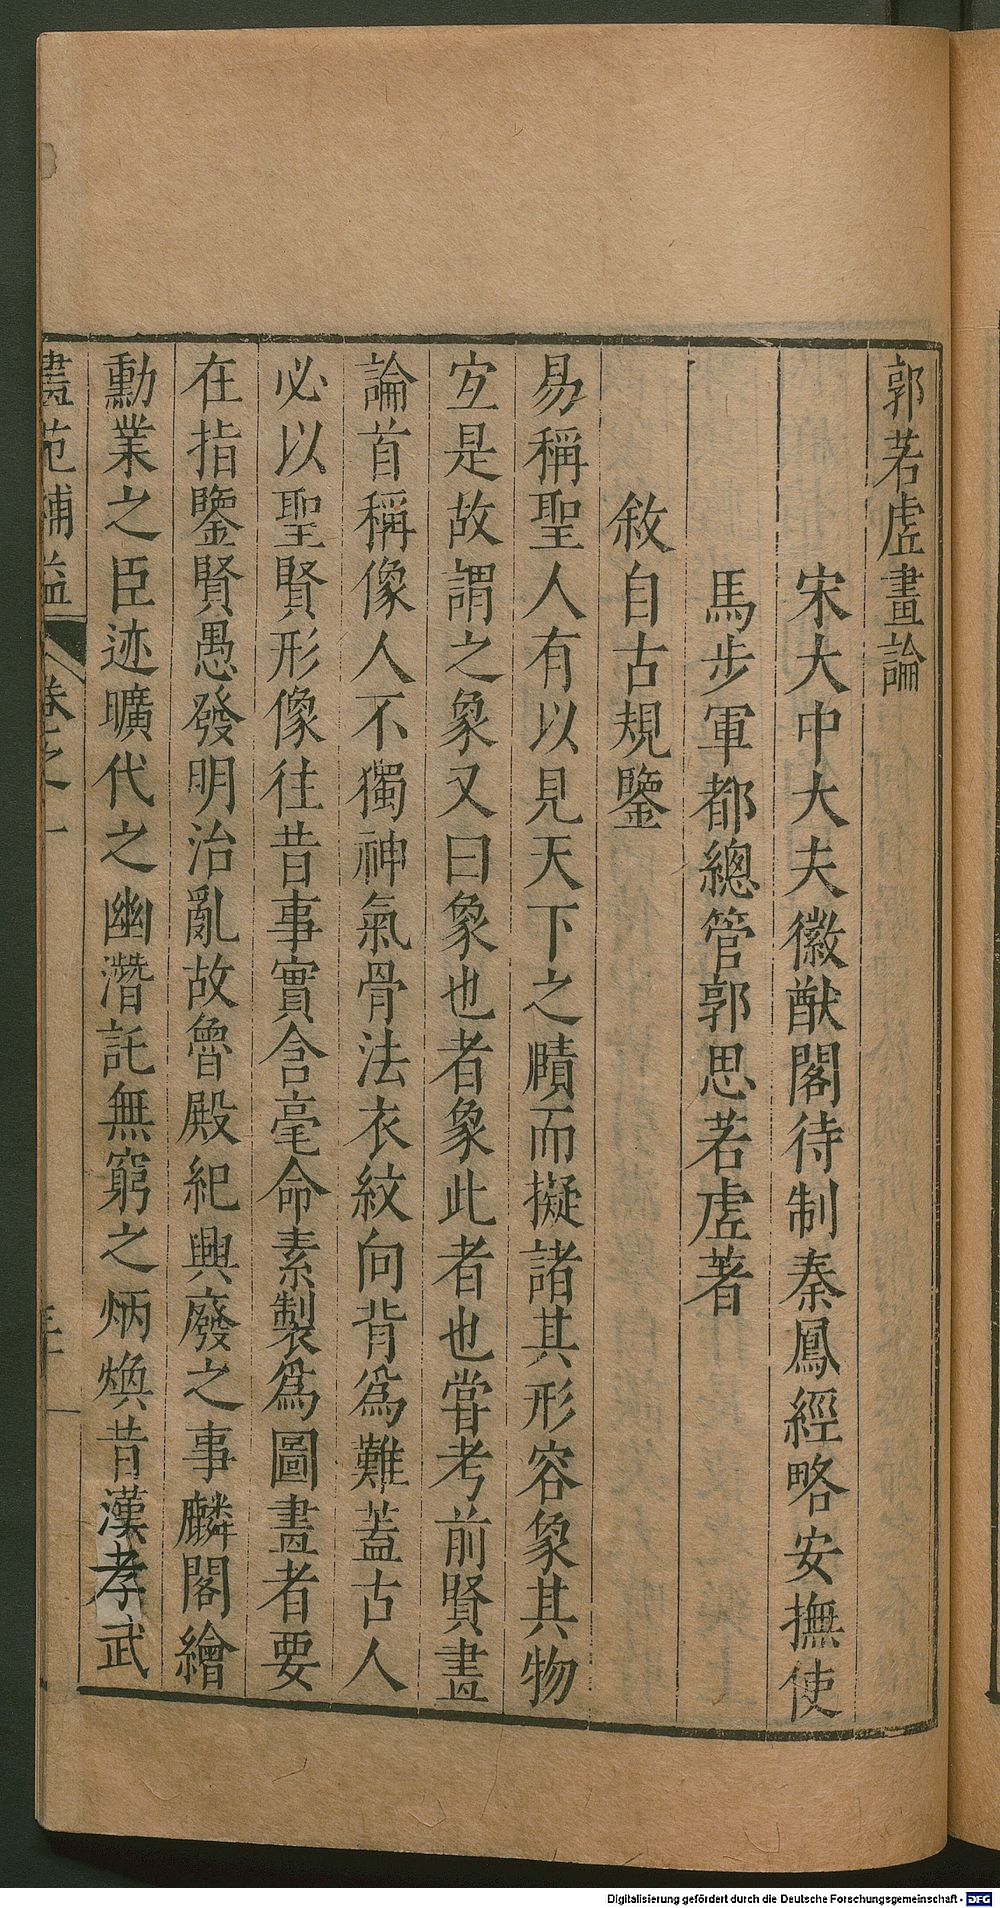 郭若虛畫論
宋大中大夫徽猷閣待制秦鳳經略安撫使
馬步軍都總管郭思若虛著
敘自古規鑒
易稱聖人有以見天下之賾而擬諸其形容象其物
宐是故謂之象又曰象也者象此者也甞考前賢畫
論首稱像人不獨神氣骨法衣紋向背爲難蓋古人
必以聖賢形像徃昔事實含毫命素製爲圖畫者要
在指鑒賢愚發明治亂故魯殿紀興廢之事麟閣繪
勳業之臣迹曠代之幽潛託無窮之炳煥昔漢孝武
畫苑補益 卷之一
Digitalisierung gefördert durch die Deutsche Forschungsgemeinschaft - DFG